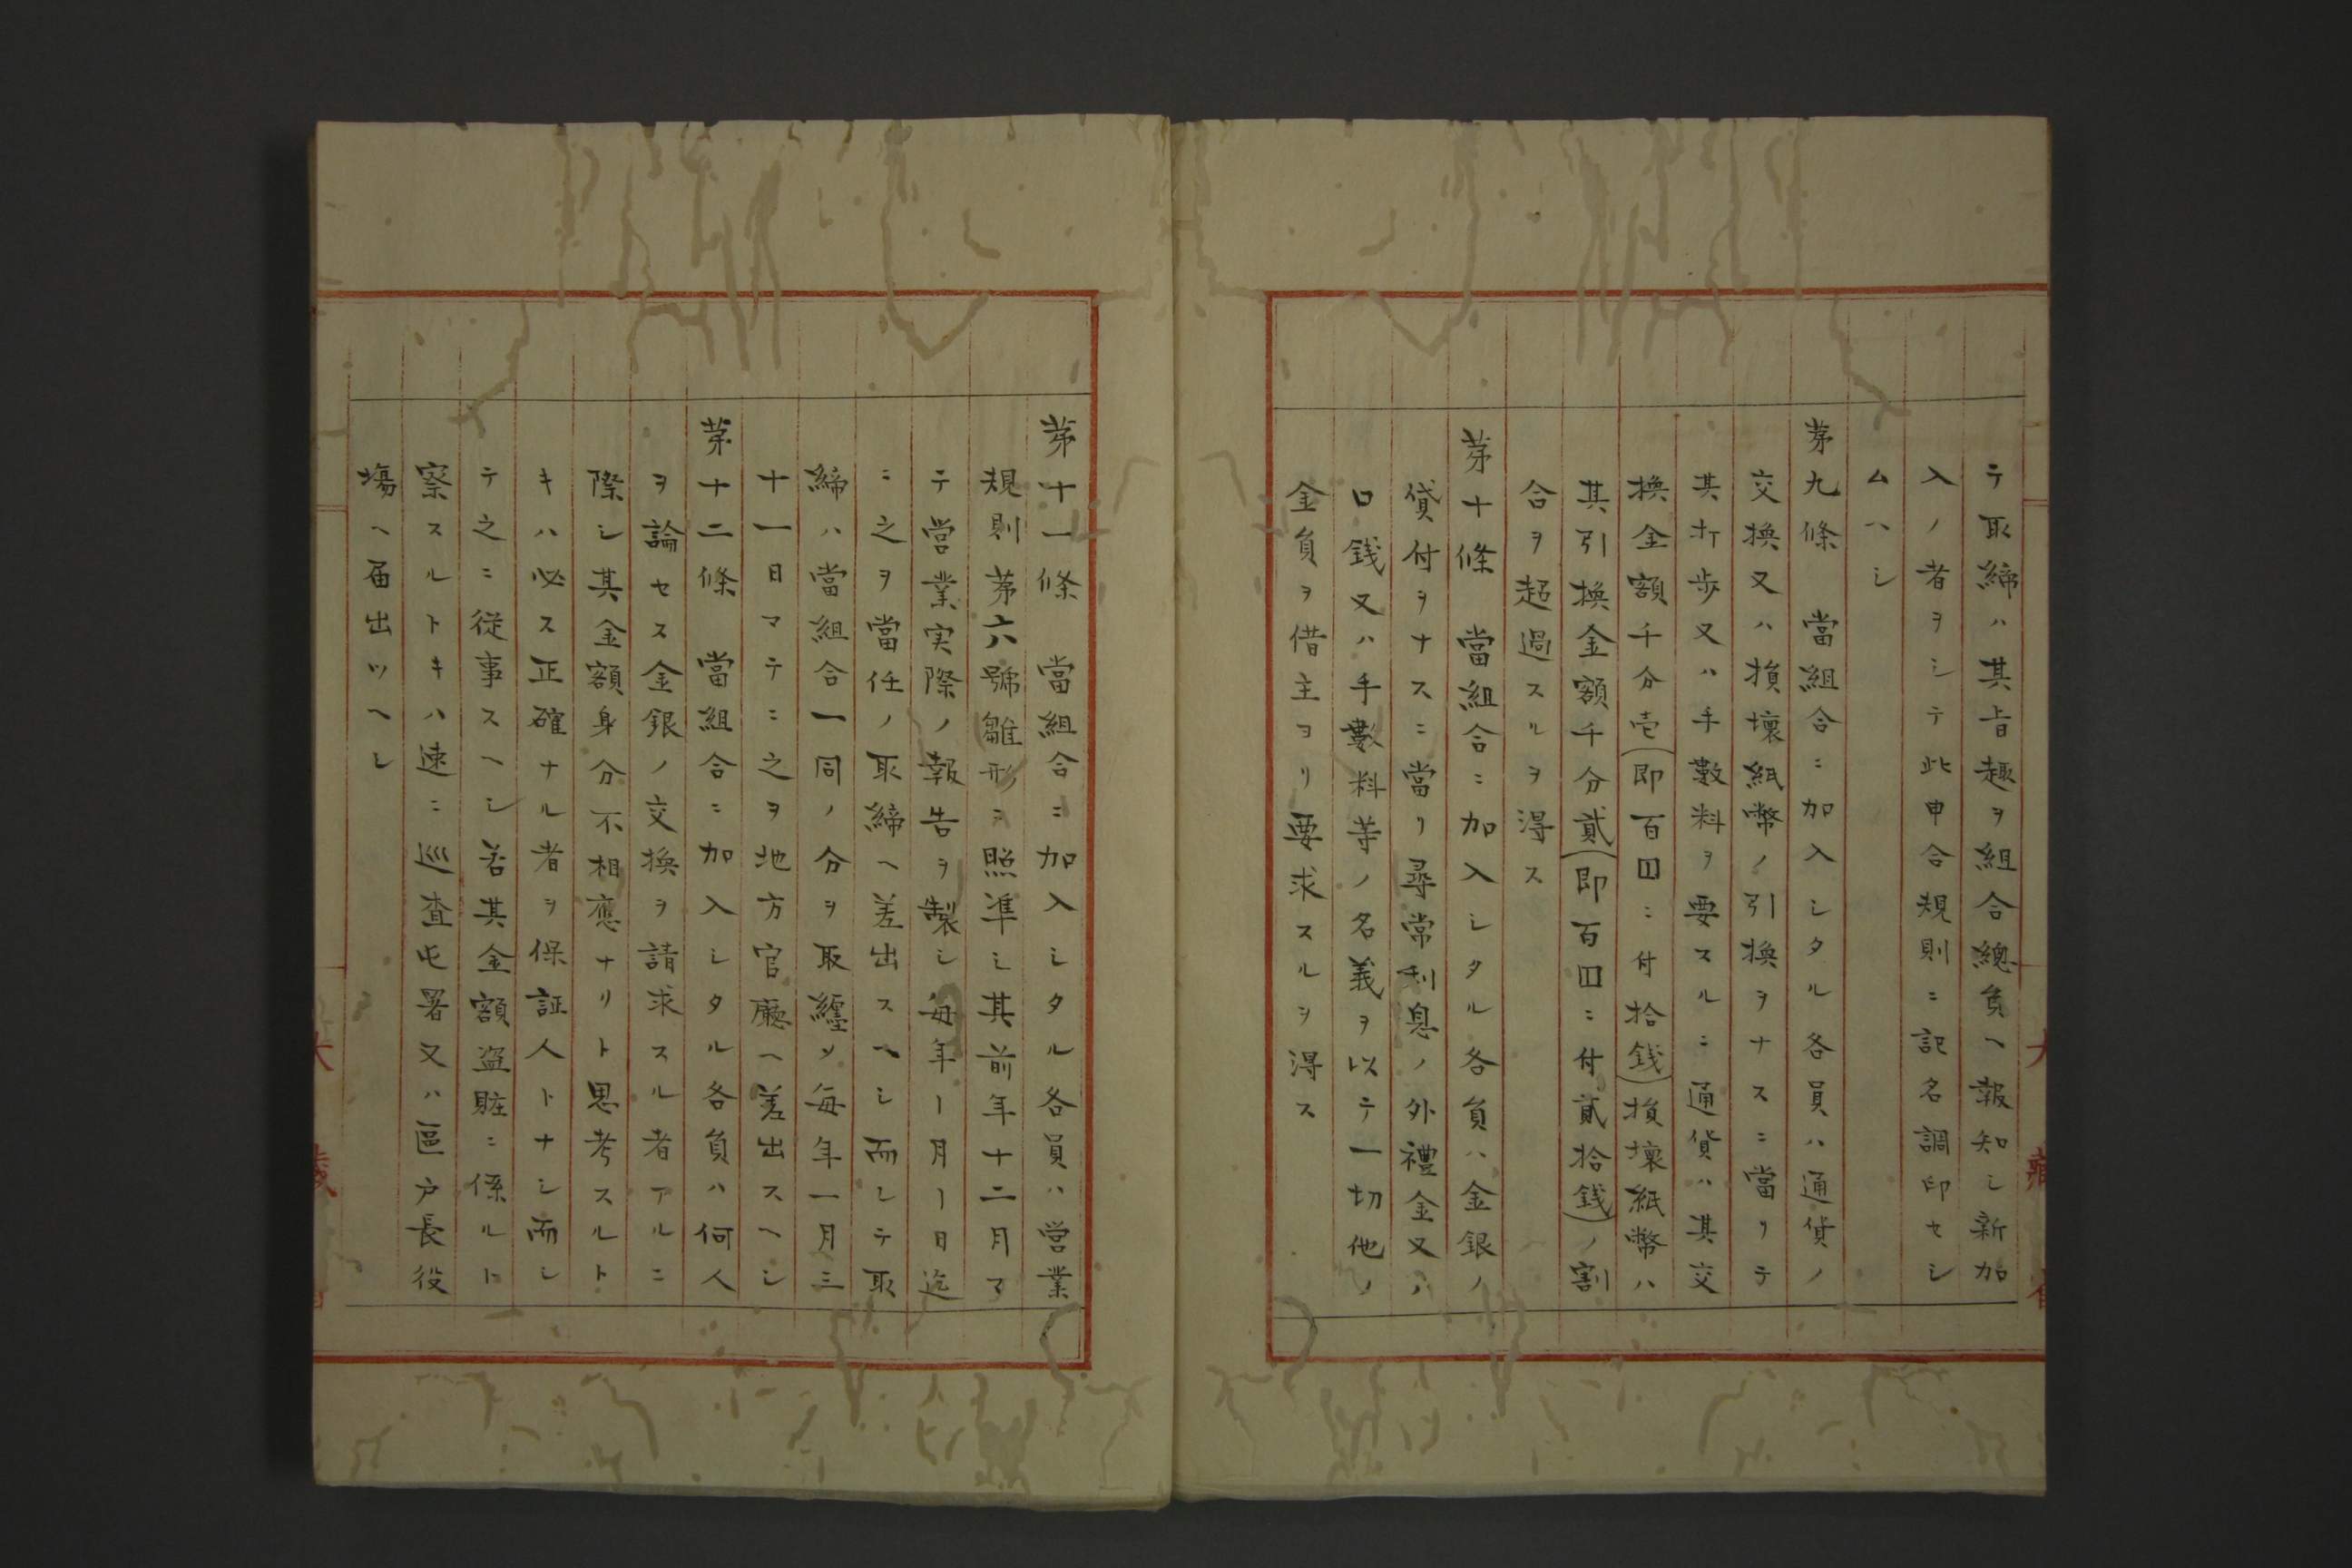 テ取締ハ其旨趣ヲ組合總負ヘ報知シ新加
入ノ者ヲシテ此申合規則ニ記名調印セシ
ムヘシ
苐九條 當組合ニ加入シタル各員ハ通貨ノ
交換又ハ損壞紙幣ノ引換ヲナスニ當リテ
其打歩又ハ手數料ヲ要スルニ通貨ハ其交
換金額千分壱(即百囗ニ付拾銭)損壞紙幣ハ
其引換金額千分貳(即百囗ニ付貳拾銭)ノ割
合ヲ超過スルヲ得ス
苐十條 當組合ニ加入シタル各負ハ金銀ノ
貸付ヲナスニ當リ尋常利息ノ外禮金又ハ
口銭又ハ手數料等ノ名義ヲ以テ一切他ノ
金負ヲ借主ヨリ要求スルヲ得ス
苐十一條 當組合ニ加入シタル各員ハ営業
規則苐六號雛形ヲ照準シ其前年十二月マ
テ営業実際ノ報告ヲ製シ毎年一月一日迄
ニ之ヲ當任ノ取締ヘ差出スヘシ而シテ取
締ハ當組合一同ノ分ヲ取纏メ毎年一月三
十一日マテニ之ヲ地方官廳ヘ差出スヘシ
苐十二條 當組合ニ加入シタル各負ハ何人
ヲ論セス金銀ノ交換ヲ請求スル者アルニ
際シ其金額身分不相應ナリト思考スルト
キハ必ス正確ナル者ヲ保証人トナシ而シ
テ之ニ従事スヘシ若其金額盗賍ニ係ルト
察スルトキハ速ニ巡査屯署又ハ區戸長役
塲ヘ届出ツヘシ
大藏省